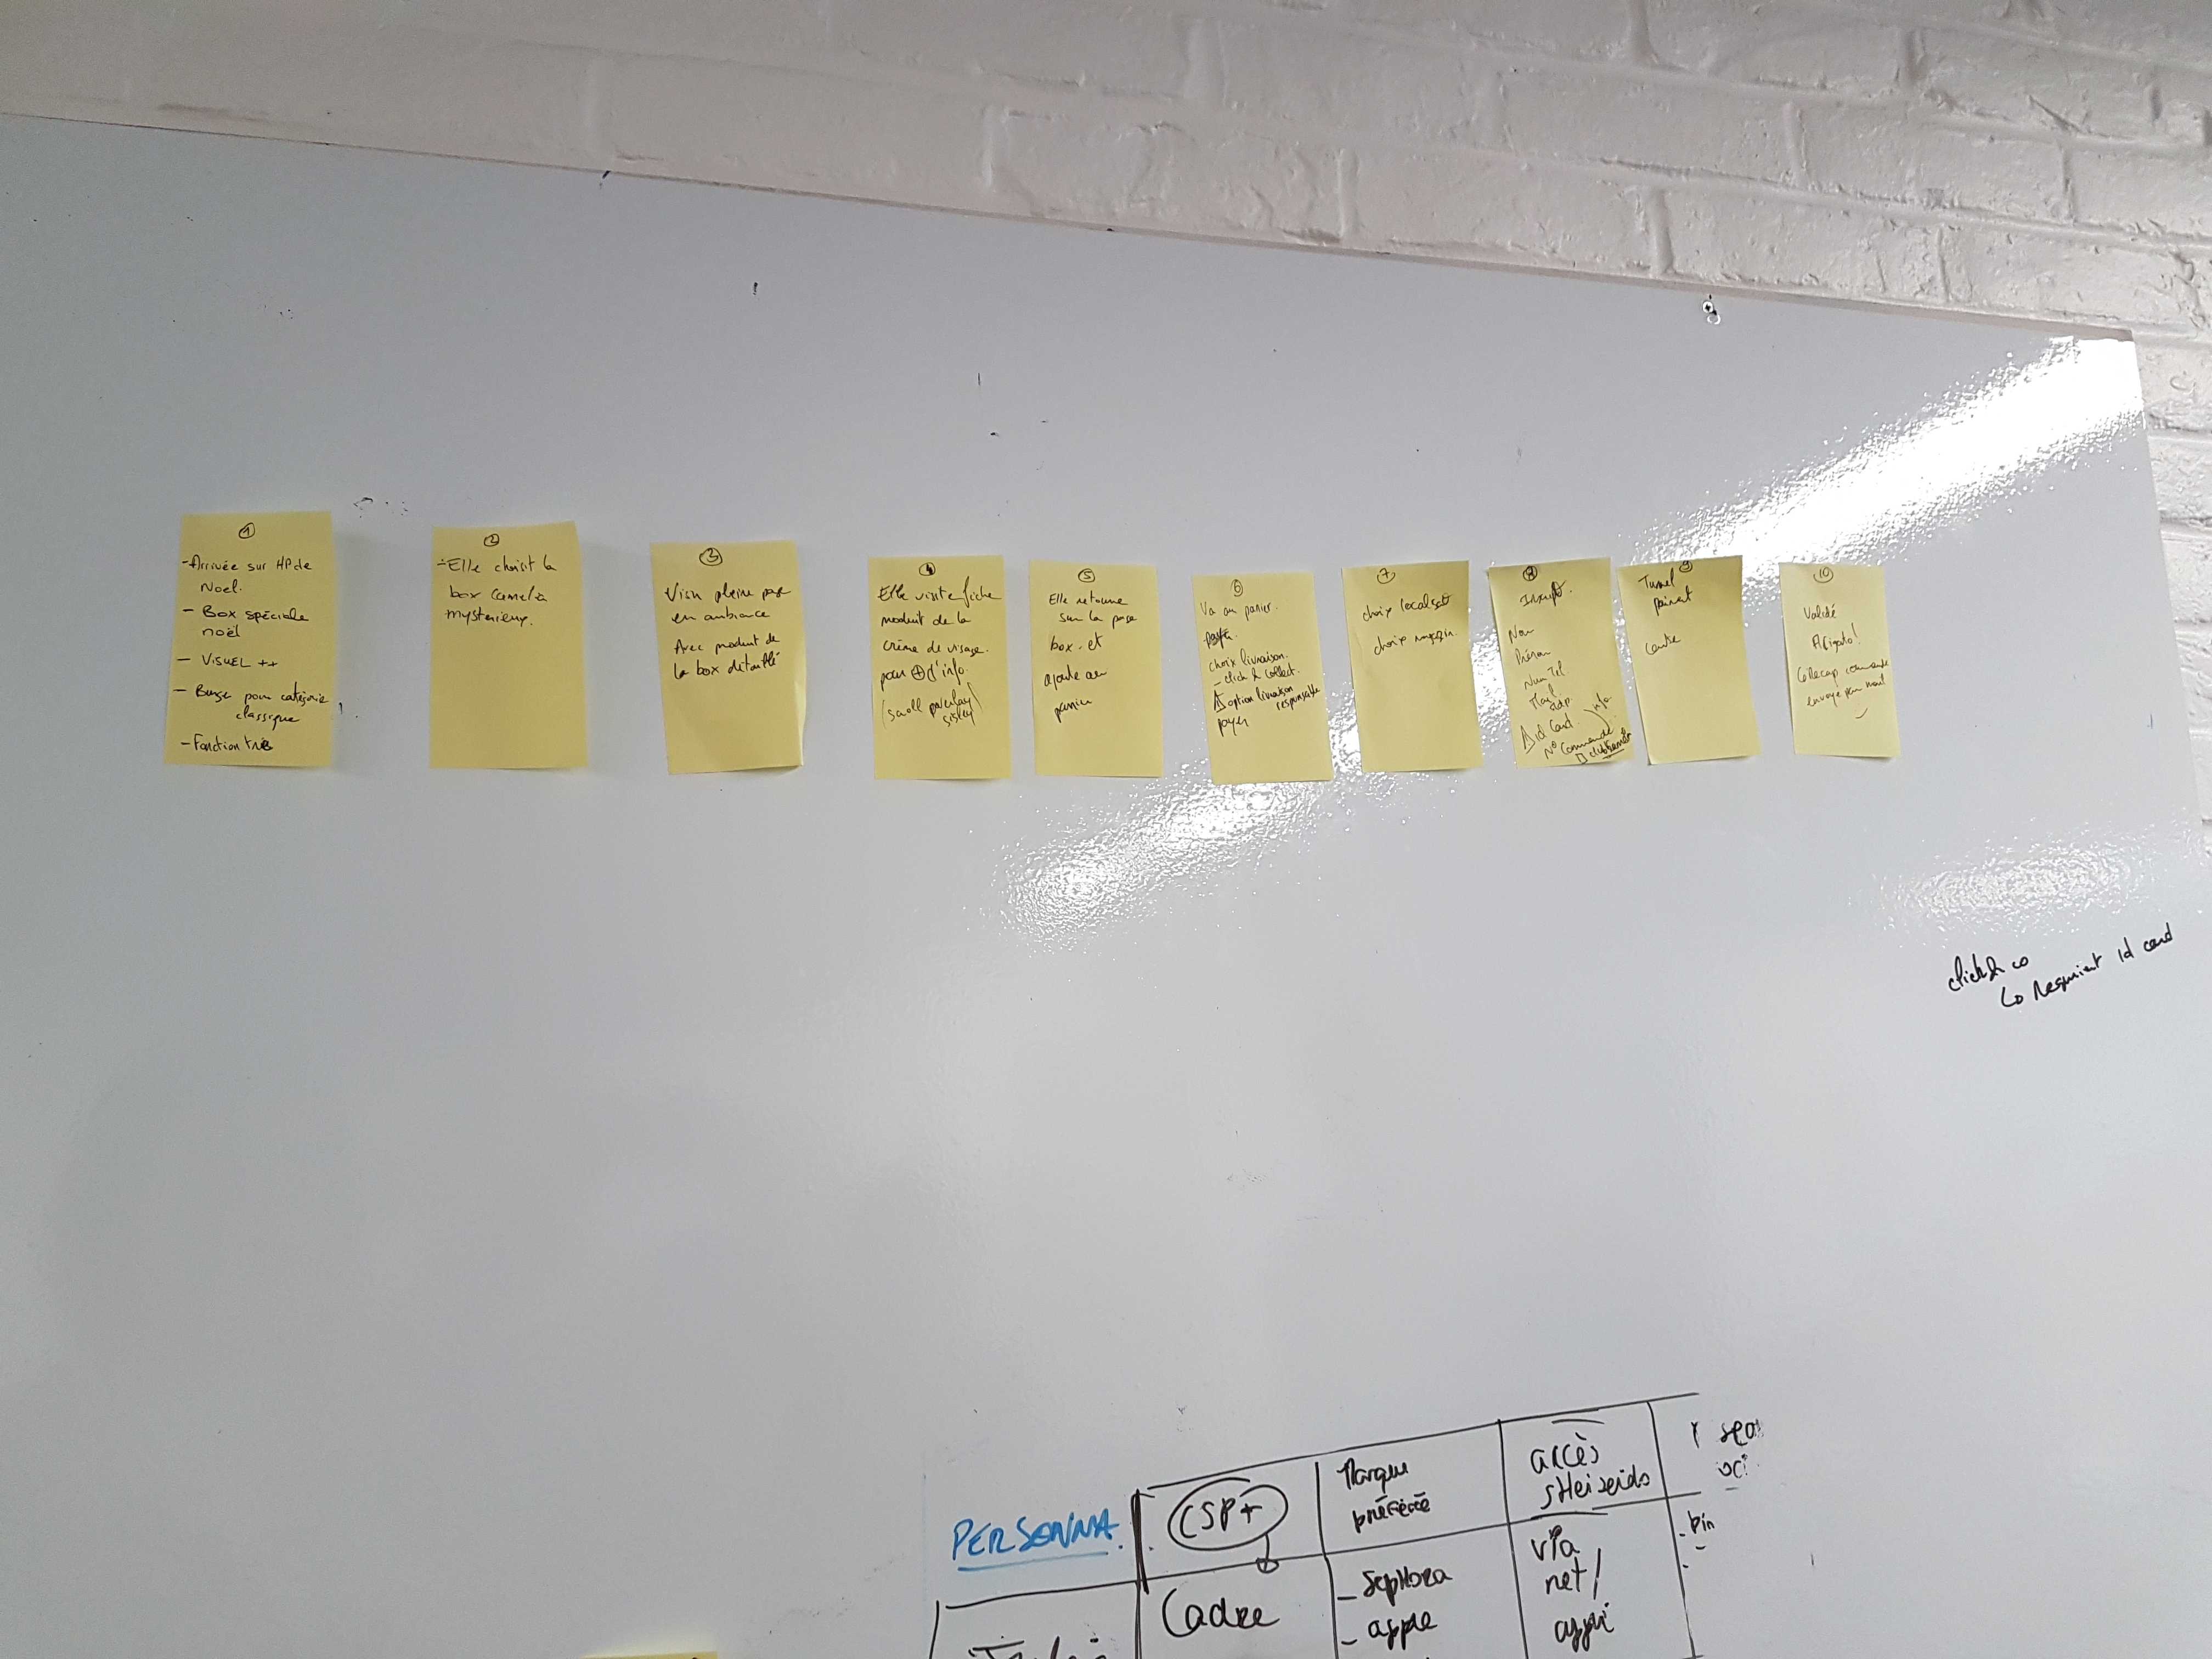 1
- Arrivée sur HP de
Noel.
- Box spéciale
noël
- VISUEL ++
- pour catégorie
classique
- Fonction
2
- Elle choisit la
box Camelia
mysterieux.
3
Visu pleine page
en ambiance
Avec produit de
la box détaillé
4
Elle visite fiche
produit de la
crème de visage.
pour + d'info.
(scroll
sisley)
5
Elle retourne
sur la page
box. et
ajoute au
panier
6
Va au panier.
choix livraison.
- click & collect.
option livraison
responsable
payer
7
choix localisat
choix magasin.
8
Inscript.
Nom
Prénom
Num Tel.
Mail
mdp.
id Card
info
N° Commande
9
Tunnel
paiemt
carte
10
Validé
Arigato!
Recap commande
envoyé par mail
click & co
id card
PERSONNA.
CSP+
Marque
préférée
accès
shiseido
Cadre
- Sephora
- apple
via
net/
appli